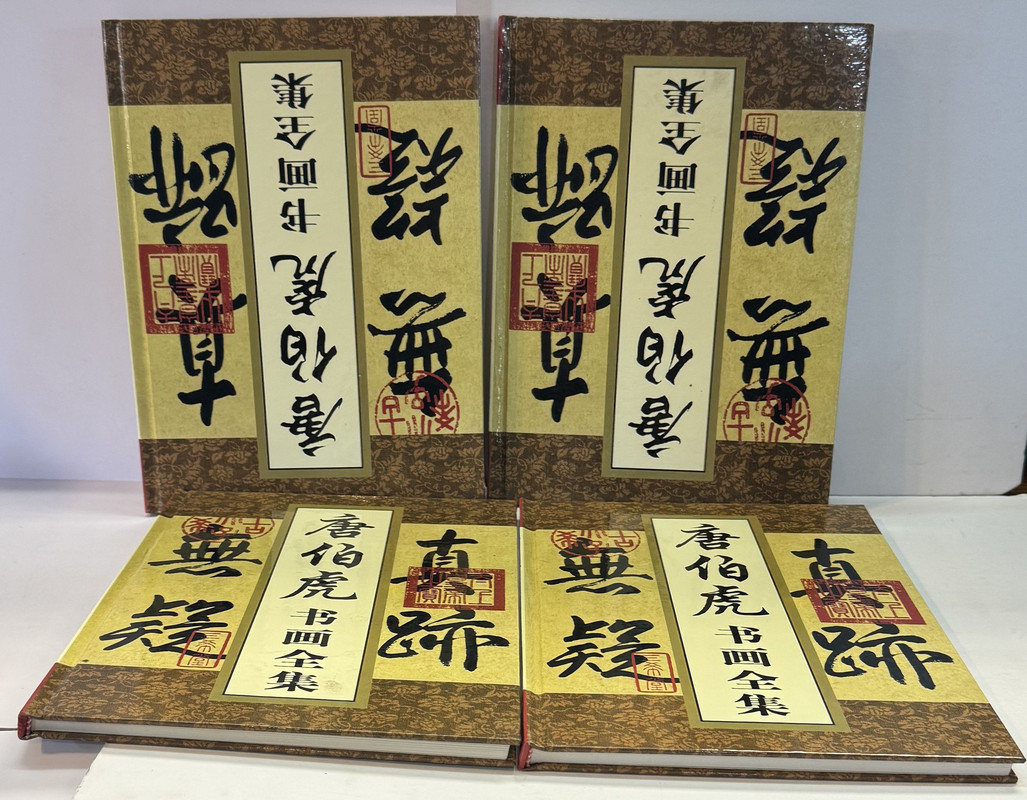 唐伯虎书画全集
真蹟
無疑
唐伯虎书画全集
真蹟
無疑
無疑
唐伯虎书画全集
真跡
無疑
唐伯虎书画全集
真跡